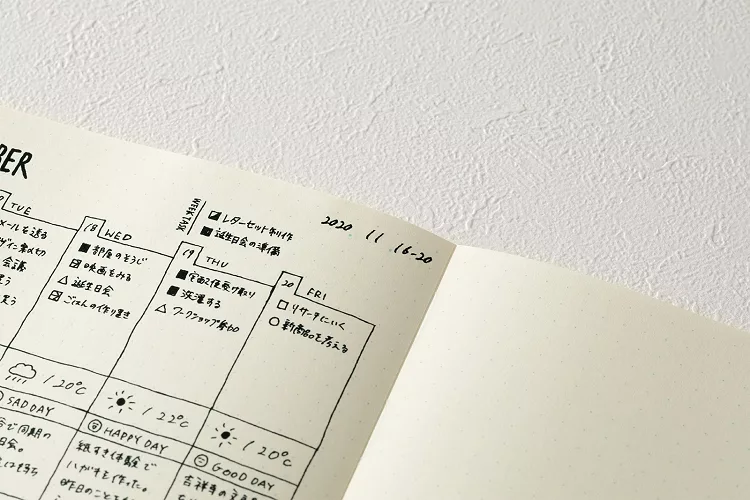 BER
WEEK TASK
レターセット制作
誕生日会の準備
2020 11 16-20
TUE
メールを送る
会議
18 WED
部屋のそうじ
映画をみる
誕生日会
ごはんの作り置き
19 THU
宅配便受け取り
洗濯する
ワークショップ参加
20 FRI
リサーチにいく
新商品を考える
/20℃
/22℃
/20℃
SAD DAY
で同期の
日会。
HAPPY DAY
紙すき体験で
ハガキを作った。
昨日のことを
GOOD DAY
吉祥寺の